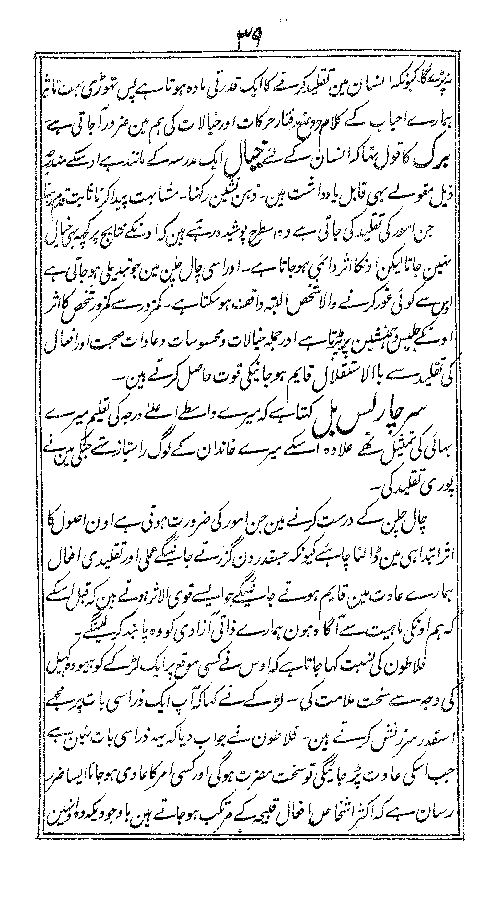 ۳۹
نہ پڑیگا کیونکہ انسان مین تقلید کرنے کا ایک قدرتی مادہ ہوتا ہے پس تھوڑی بہت تاثیر
ہمارے احباب کے کلام رفتار حرکات اور خیالات کی ہم مین ضرور آجاتی ہے
برک کا قول تھا کہ انسان کے لئے ایک مدرسہ کے مانند ہے اوسکے مندرجہ
ذیل مقولے یہی قابل یادداشت ہین۔ ذہن نشین رکھنا۔ مشابہت پیدا کرنا ثابت
جن امور کی تقلید کی جاتی ہے وہ اسطرح پوشیدہ رہتے ہین کہ اونکے نتایج پر کچھ بھی خیال
نہین جاتا لیکن اونکا اثر دائمی ہوجاتا ہے۔ اور اسی چال چلن مین جو تبدیلی ہوجاتی ہے
اوس سے کوئی غور کرنے والا شخص البتہ واقف ہوسکتا ہے۔ کمزور سے کمزور شخص کا اثر
اونکے جلیس و ہمنشین پر پڑتا ہے اور جملہ خیالات و محسوسات و عادات صحبت اور افعال
کی تقلید سے باالاستقلال قایم ہوجانیکی قوت حاصل کرتے ہین۔
سرچارلس بل کہتا ہے کہ میرے واسطے اعلے درجہ کی تعلیم میرے
بھائی کی تمثیل تھی علاوہ اسکے میرے خاندان کے لوگ راستباز تھے جنکی مین نے
پوری تقلید کی۔
چال چلن کے درست کرنے مین جن امور کی ضرورت ہوتی ہے اون اصول کا
اثر ابتدا ہی مین ڈالنا چاہئے کیونکہ جسقدر دن گزرتے جائینگے عملی اور تقلیدی افعال
ہمارے عادت مین قایم ہوتے جائینگے جو ایسے قوی الاثر ہوتے ہین کہ قبل اسکے
کہ ہم اونکی ماہیت سے آگاہ ہون ہمارے ذاتی آزادی کو وہ پابند کرلینگے۔
فلاطون کی نسبت کہا جاتا ہے کہ اوس نے کسی موقع پر ایک لڑکے کو بیہودہ کھیل
کی وجہ سے سخت ملامت کی۔ لڑکے نے کہا کہ آپ ایک ذراسی بات پر مجھے
اسقدر سرزنش کرتے ہین۔ فلاطون نے جواب دیا کہ یہ ذراسی بات نہین ہے
جب اسکی عادت پڑجائیگی تو سخت مضرت ہوگی اور کسی امر کا عادی ہوجانا ایسا ضرر
رسان ہے کہ اکثر اشخاص افعال قبیحہ کے مرتکب ہوجاتے ہین باوجودیکہ وہ انہین